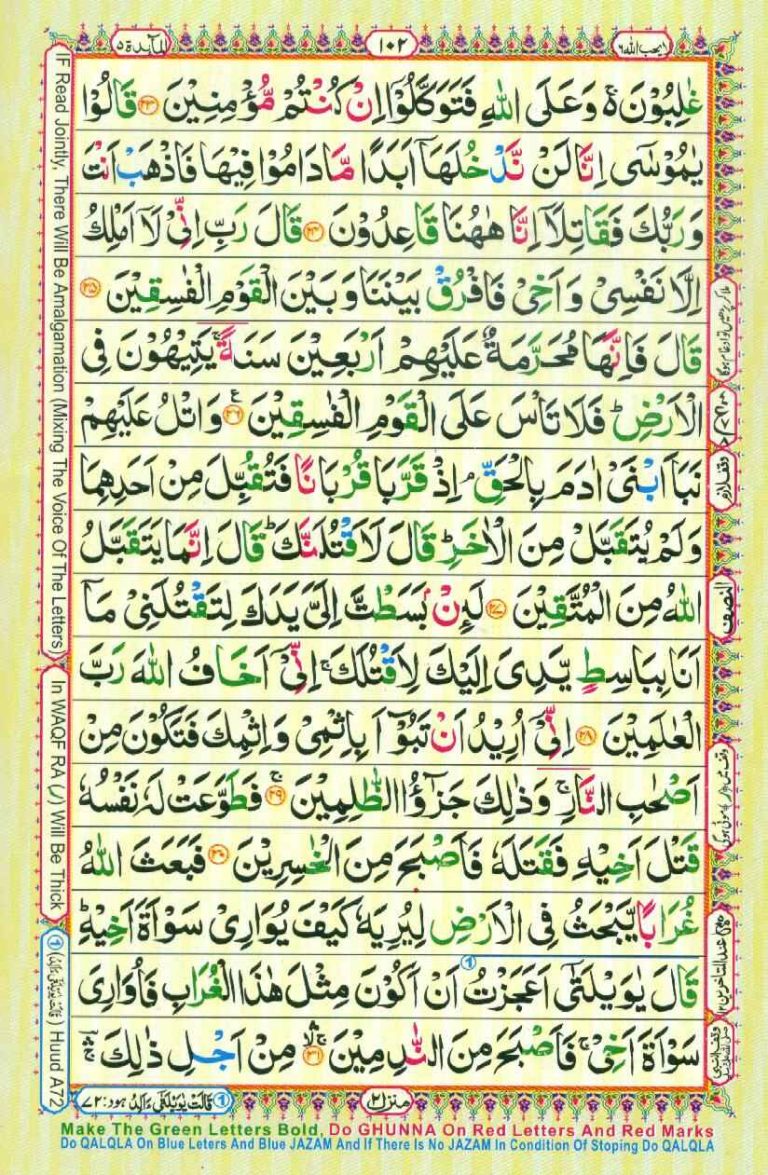 المآئدة ۵
۱۰۲
لا یحب اللہ ۶
غٰلِبُوْنَ ۚ۬ وَعَلَى اللّٰهِ فَتَوَكَّلُوْۤا اِنْ كُنْتُمْ مُّؤْمِنِيْنَ ۝۲۳ قَالُوْا
يٰمُوْسٰۤى اِنَّا لَنْ نَّدْخُلَهَاۤ اَبَدًا مَّا دَامُوْا فِيْهَا فَاذْهَبْ اَنْتَ
وَرَبُّكَ فَقَاتِلَاۤ اِنَّا هٰهُنَا قَاعِدُوْنَ ۝۲۴ قَالَ رَبِّ اِنِّيْ لَاۤ اَمْلِكُ
اِلَّا نَفْسِيْ وَاَخِيْ فَافْرُقْ بَيْنَنَا وَبَيْنَ الْقَوْمِ الْفٰسِقِيْنَ ۝۲۵
قَالَ فَاِنَّهَا مُحَرَّمَةٌ عَلَيْهِمْ اَرْبَعِيْنَ سَنَةً ۚ يَتِيْهُوْنَ فِي
الْاَرْضِ ؕ فَلَا تَاْسَ عَلَى الْقَوْمِ الْفٰسِقِيْنَ ۝۲۶ وَاتْلُ عَلَيْهِمْ
نَبَاَ ابْنَيْ اٰدَمَ بِالْحَقِّ ۘ اِذْ قَرَّبَا قُرْبَانًا فَتُقُبِّلَ مِنْ اَحَدِهِمَا
وَلَمْ يُتَقَبَّلْ مِنَ الْاٰخَرِ ؕ قَالَ لَاَقْتُلَنَّكَ ؕ قَالَ اِنَّمَا يَتَقَبَّلُ
اللّٰهُ مِنَ الْمُتَّقِيْنَ ۝۲۷ لَئِنْۢ بَسَطْتَّ اِلَيَّ يَدَكَ لِتَقْتُلَنِيْ مَاۤ
اَنَا بِبَاسِطٍ يَّدِيَ اِلَيْكَ لِاَقْتُلَكَ ۚ اِنِّيْۤ اَخَافُ اللّٰهَ رَبَّ
الْعٰلَمِيْنَ ۝۲۸ اِنِّيْۤ اُرِيْدُ اَنْ تَبُوْٓاَ بِاِثْمِيْ وَاِثْمِكَ فَتَكُوْنَ مِنْ
اَصْحٰبِ النَّارِ ۚ وَذٰلِكَ جَزٰٓؤُا الظّٰلِمِيْنَ ۝۲۹ فَطَوَّعَتْ لَهٗ نَفْسُهٗ
قَتْلَ اَخِيْهِ فَقَتَلَهٗ فَاَصْبَحَ مِنَ الْخٰسِرِيْنَ ۝۳۰ فَبَعَثَ اللّٰهُ
غُرَابًا يَّبْحَثُ فِي الْاَرْضِ لِيُرِيَهٗ كَيْفَ يُوَارِيْ سَوْءَةَ اَخِيْهِ ؕ
قَالَ يٰوَيْلَتٰۤى اَعَجَزْتُ اَنْ اَكُوْنَ مِثْلَ هٰذَا الْغُرَابِ فَاُوَارِيَ
سَوْءَةَ اَخِيْ ۚ فَاَصْبَحَ مِنَ النّٰدِمِيْنَ ۝۳۱ مِنْ اَجْلِ ذٰلِكَ
IF Read Jointly, There Will Be Amalgamation (Mixing The Voice Of The Letters)
In WAQF RA (ر) Will Be Thick
① (قَالَتْ يٰوَيْلَتٰٓى ءَاَلِدُ) Huud A72
وقف لازم
النصف
① قَالَتْ يٰوَيْلَتٰٓى ءَاَلِدُ هود: ۷۲
منزل ۲
Make The Green Letters Bold, Do GHUNNA On Red Letters And Red Marks
Do QALQLA On Blue Leters And Blue JAZAM And If There Is No JAZAM In Condition Of Stoping Do QALQLA